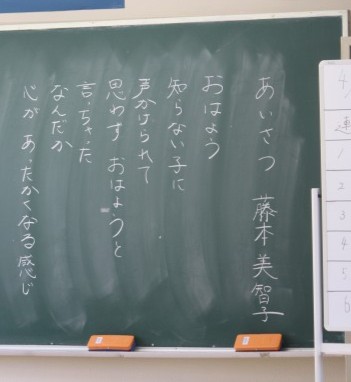 あいさつ　藤本美智子
おはよう
知らない子に
声かけられて
思わず おはようと
言っちゃった
なんだか
心が あったかくなる感じ
4/
連
1
2
3
4
5
6